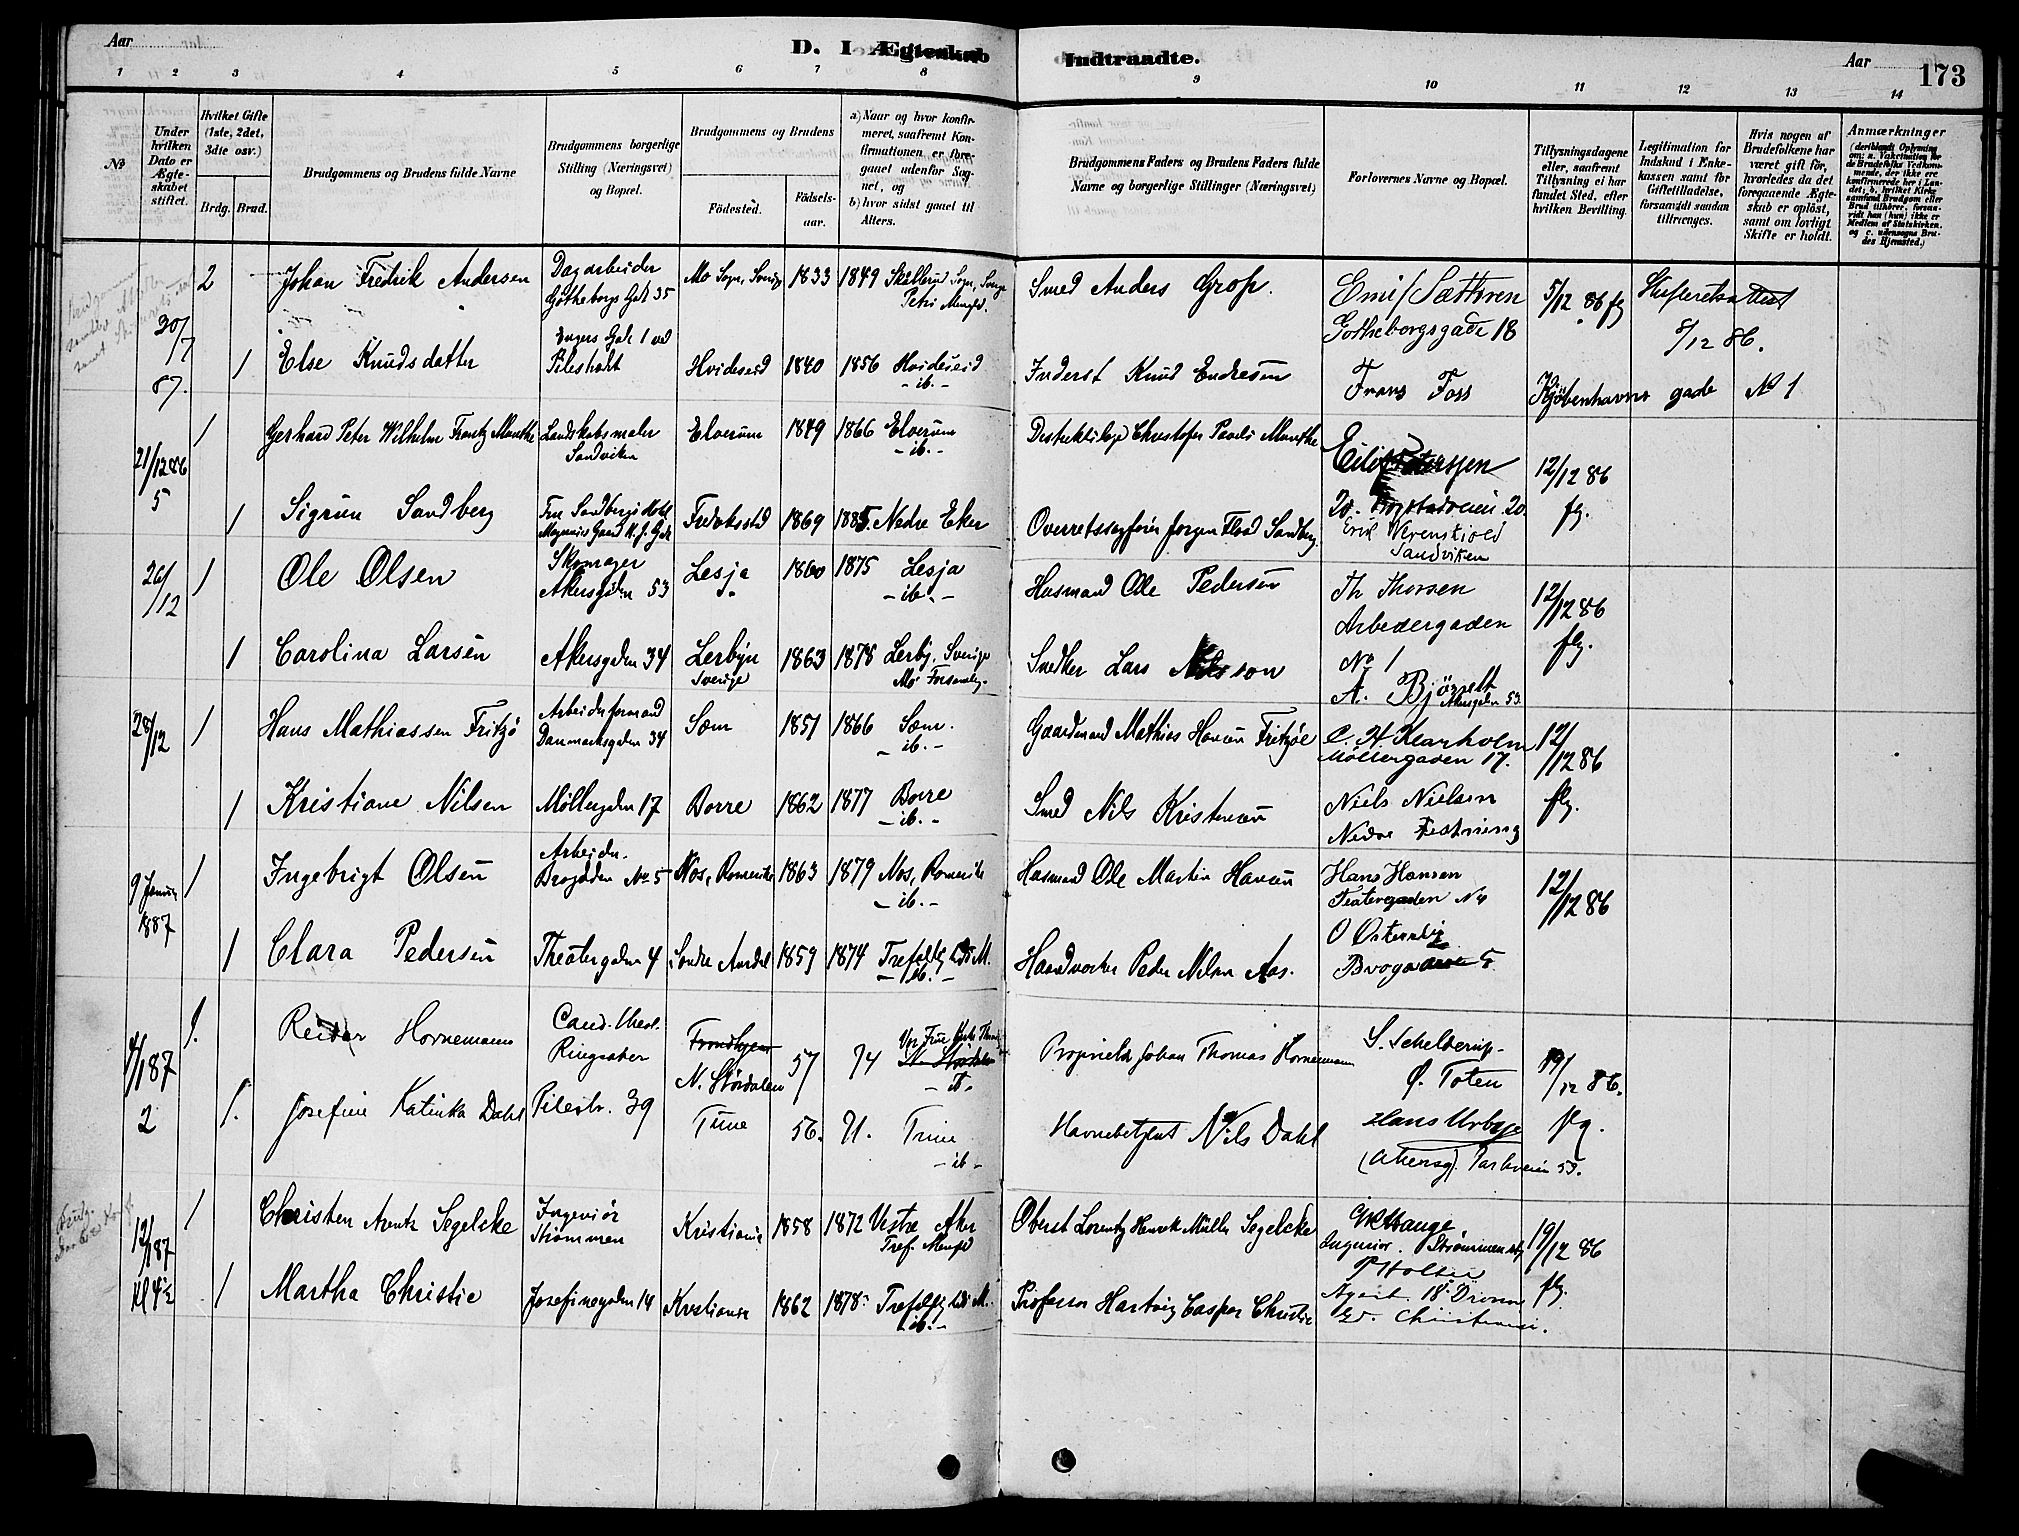 Aar
D. I Ægteskab Indtraadte.
Aar
173
1 2 3 4 5 6 7 8 9 10 11 12 13 14
No
Under hvilken Dato er Ægteskabet stiftet.
Hvilket Gifte (1ste, 2det, 3die osv.)
Brdg. Brud.
Brudgommens og Brudens fulde Navne
Brudgommens borgerlige Stilling (Næringsvei) og Bopæl.
Brudgommens og Brudens
Födested.
Födselsaar.
a) Naar og hvor konfirmeret, saafremt Konfirmationen er foregaaet udenfor Sognet, og
b) hvor sidst gaaet til Alters.
Brudgommens Faders og Brudens Faders fulde Navne og borgerlige Stillinger (Næringsvei)
Forlovernes Navne og Bopæl.
Tillysningsdagene eller, saafremt Tillysning ei har fundet Sted, efter hvilken Bevilling.
Legitimation for Indskud i Enkekassen samt for Giftetilladelse, forsaavidt saadan tiltrænges.
Hvis nogen af Brudefolkene har været gift för, hvorledes da det foregaaende Ægteskab er oplöst, samt om lovligt Skifte er holdt.
Anmærkninger (deriblandt Oplysning om: a. Vakcination for de Brudefolks Vedkommende, der ikke ere konfirmerede her i Landet; b. hvilket Kirkesamfund Brudgom eller Brud tilhörer, forsaavidt han (hun) ikke er Medlem af Statskirken, og c. udensogns Brudes Hjemsted.)
30/7 87.
2 Johan Fredrik Andersen Dagarbeider Götheborgs Gade 35 Mo Sogn, Sverige 1833 1849 Skållerud Sogn, Sverige Petri Menigh. Smed Anders Grop. Emil Sættren Gotheborgsgade 18 5/12 86 flg Skifteretsattest 8/12 86.
1 Else Knudsdatter Engers Gade 1 ved Pilestradet Hvideseid 1840 1856 Hvideseid - ib. - Inderst Knud Endresen Frans Foss Kjöbenhavns gade No 1
21/12 86 5
1 Gerhard Peter Wilhelm Frantz Munthe Landskabsmaler Sandviken Elverum 1849 1866 Elverum - ib. - Distriktslæge Christofer Pavels Munthe Eilif Peterssen 20. 20 12/12 86 flg.
1 Sigrun Sandberg Fru Sandbergs Hotel K. J. Gade Fredriksstad 1869 1885. Nedre Eker Overretssagförer Jörgen Flood Sandberg Erik Werenskiold Sandviken
26/12
1 Ole Olsen Skomager Akersgaden 53 Lesja 1860 1875 Lesja - ib. - Husmand Ole Pedersen Th Thorsen Arbedergaden No 1 12/12 86 flg.
1 Carolina Larsen Akersgaden 34 Lerbyn Sverige 1863 1878 Lerby, Sverige Snedker Lars Nilsson A. Björselt Akersgaden 53
28/12
1 Hans Mathiassen Fritzö Arbeidsformand Danmarksgaden 34 Sæm 1851 1866 Sæm. - ib. - Gaardmand Mathias Hansen Fritzöe C. H. Klarholm Möllergaden 17. 12/12 86 flg.
1 Kristiane Nilsen Möllergaden 17 Borre 1862 1877 Borre - ib. - Smed Nils Kristensen Niels Nielsen Nedre Festning
9 Januar 1887
1 Ingebrigt Olsen Arbeider. Brogaden No 5 Næs, Romerike 1863 1879 Næs, Romerike - ib. - Husmand Ole Martin Hansen Hans Hansen Teatergaden No 4 12/12 86
1 Clara Pedersen Theatergaden 4 Söndre Aurdal 1859 1874 Trefoldigheds M. - ib. - Haandverker Peder Nilsen Aas. O Österslig Brogaden 5
4/1 87 2
1. Reidar Hornemann Cand. theol. Ringsaker Trondhjem N. Stördalen 57 74 Vor Frue Kirke N. Stördalen - ib - Proprietær Johan Thomas Hornemann S. Schelderup. Ö. Toten 19/12 86.
1. Josefine Katinka Dahl Pilestr. 39 Tune 56. 71. Tune - ib - Havnebetjent Nils Dahl Hans Urbye (Akersg) Parkveien 53. flg.
12/1 87 Kl 4½
1 Christen Arentz Segelcke Ingeniör Strömmen Kristiania 1858 1872 Vestre Aker Tref. Menigh Oberst Lorentz Henrik Müller Segelcke Hauge. Ingeniör. Strömmen 19/12 86 flg.
1 Martha Christie Josefinegaden 14 Kristiania 1862 1878 Trefoldigheds M. - ib. - Professor Hartvig Caspar Christie P Holter Agent 18 Christiania.